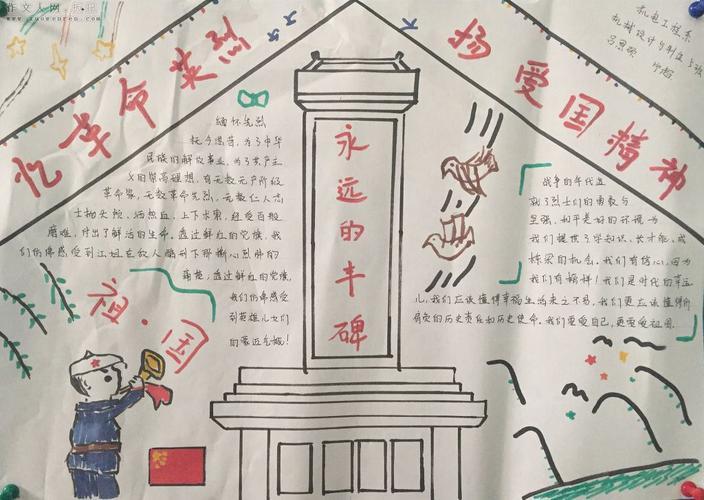 作文人网
忆革命英烈
扬爱国精神
机电工程系
永远的丰碑
缅怀先烈
抚今思昔,为了中华
民族的解放事业,为了共产主
义的崇高理想,有无数无产阶级
革命家,无数革命先烈,无数仁人志
士抛头颅,洒热血,上下求索,经受百般
磨难,付出了鲜活的生命。透过鲜红的党旗,我
们仿佛感受到江姐在敌人
痛楚,透过鲜红的党旗,
我们仿佛感受
到英雄儿女们
的豪迈气概!
祖·国
战争的年代造
就了烈士们的勇敢与
坚强,和平美好的环境为
我们提供了学知识、长才能,成
栋梁的机会。我们有信心,因为
我们有榜样!我们是时代的幸运
儿,我们应该懂得幸福生活来之不易,我们更应该懂得所
肩负的历史责任和历史使命。我们要爱自己,更要爱祖国